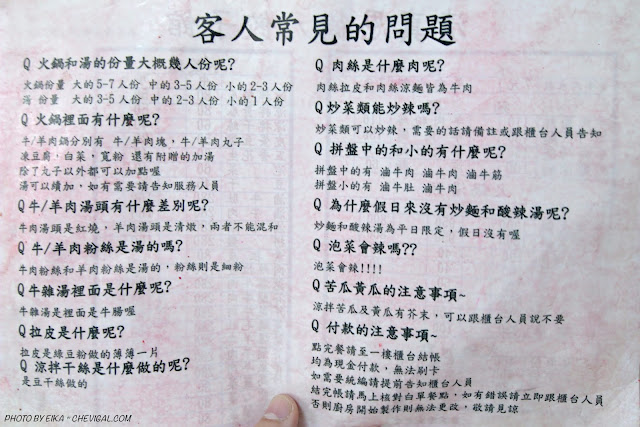 客人常見的問題
Q 火鍋和湯的份量大概幾人份呢?
火鍋份量 大的5-7人份 中的3-5人份 小的2-3人份
湯 份量 大的3-5人份 中的2-3人份 小的1人份
Q 火鍋裡面有什麼呢?
牛/羊肉鍋分別有 牛/羊肉塊,牛/羊肉丸子
凍豆腐,白菜,寬粉 還有附贈的加湯
除了丸子以外都可以加點喔
湯可以續加,如有需要請告知服務人員
Q牛/羊肉湯頭有什麼差別呢?
牛肉湯頭是紅燒,羊肉湯頭是清燉,兩者不能混和
Q 牛/羊肉粉絲是湯的嗎?
牛肉粉絲和羊肉粉絲是湯的,粉絲則是細粉
Q牛雜湯裡面是什麼呢?
牛雜湯是裡面是牛腸喔
Q拉皮是什麼呢?
拉皮是綠豆粉做的薄薄一片
Q 涼拌干絲是什麼做的呢?
是豆干絲做的
Q 肉絲是什麼肉呢?
肉絲拉皮和肉絲涼麵皆為牛肉
Q炒菜類能炒辣嗎?
炒菜類可以炒辣,需要的話請備註或跟櫃台人員告知
Q 拼盤中的和小的有什麼呢?
拼盤中的有 滷牛肉 滷牛肉 滷牛筋
拼盤小的有 滷牛肚 滷牛肉
Q 為什麼假日來沒有炒麵和酸辣湯呢?
炒麵和酸辣湯為平日限定,假日沒有喔
Q 泡菜會辣嗎??
泡菜會辣!!!!
Q苦瓜黃瓜的注意事項~
涼拌苦瓜及黃瓜有芥末,可以跟櫃台人員說不要
Q 付款的注意事項~
點完餐請至一樓櫃台結帳
均為現金付款,無法刷卡
如需要統編請提前告知櫃台人員
結完帳請馬上核對白單餐點,如有錯誤請立即跟櫃台人員
否則廚房開始製作則無法更改,敬請見諒
PHOTO BY EIKA * CHEVIGAL.COM